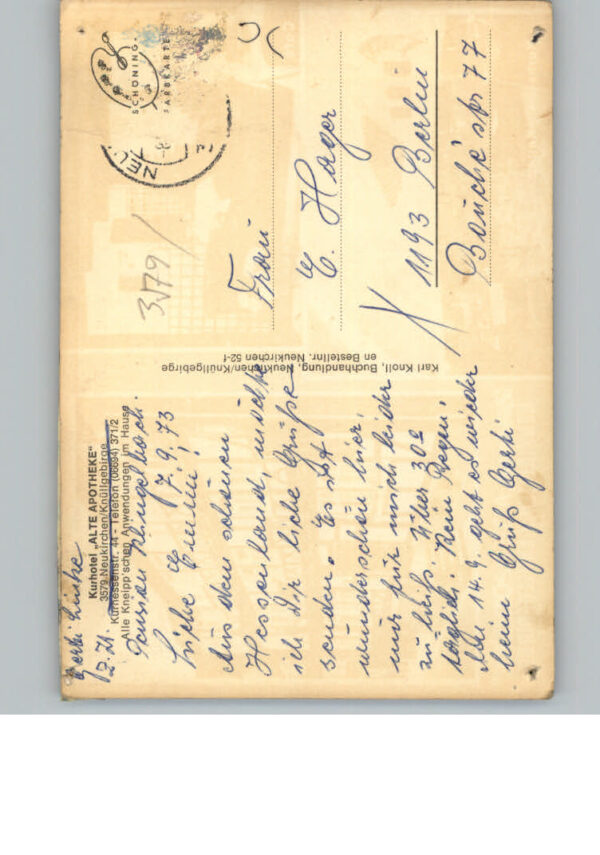 Gerti Linke
z. Zt.
Kurhotel „ALTE APOTHEKE"
3579 Neukirchen/Knüllgebirge
Kurhessenstr. 44 - Telefon (06694) 371/2
Alle Kneipp'schen Anwendungen im Hause
Pension
7.9.73
Liebe Emmi!
Aus dem schönen
Hessenland, möchte
ich Dir liebe Grüße
senden. Es ist
wunderschön hier,
nur für mich leider
zu heiß. Über 30°
täglich. Kein Regen.
Am 14.9. geht es wieder
heim Gruß Gerti
Karl Knoll, Buchhandlung, Neukirchen/Knüllgebirge
en Bestellnr. Neukirchen 52-f
SCHÖNING
FARBKARTE
NEU
Frau
E. Hager
1193 Berlin
Bouché str 77